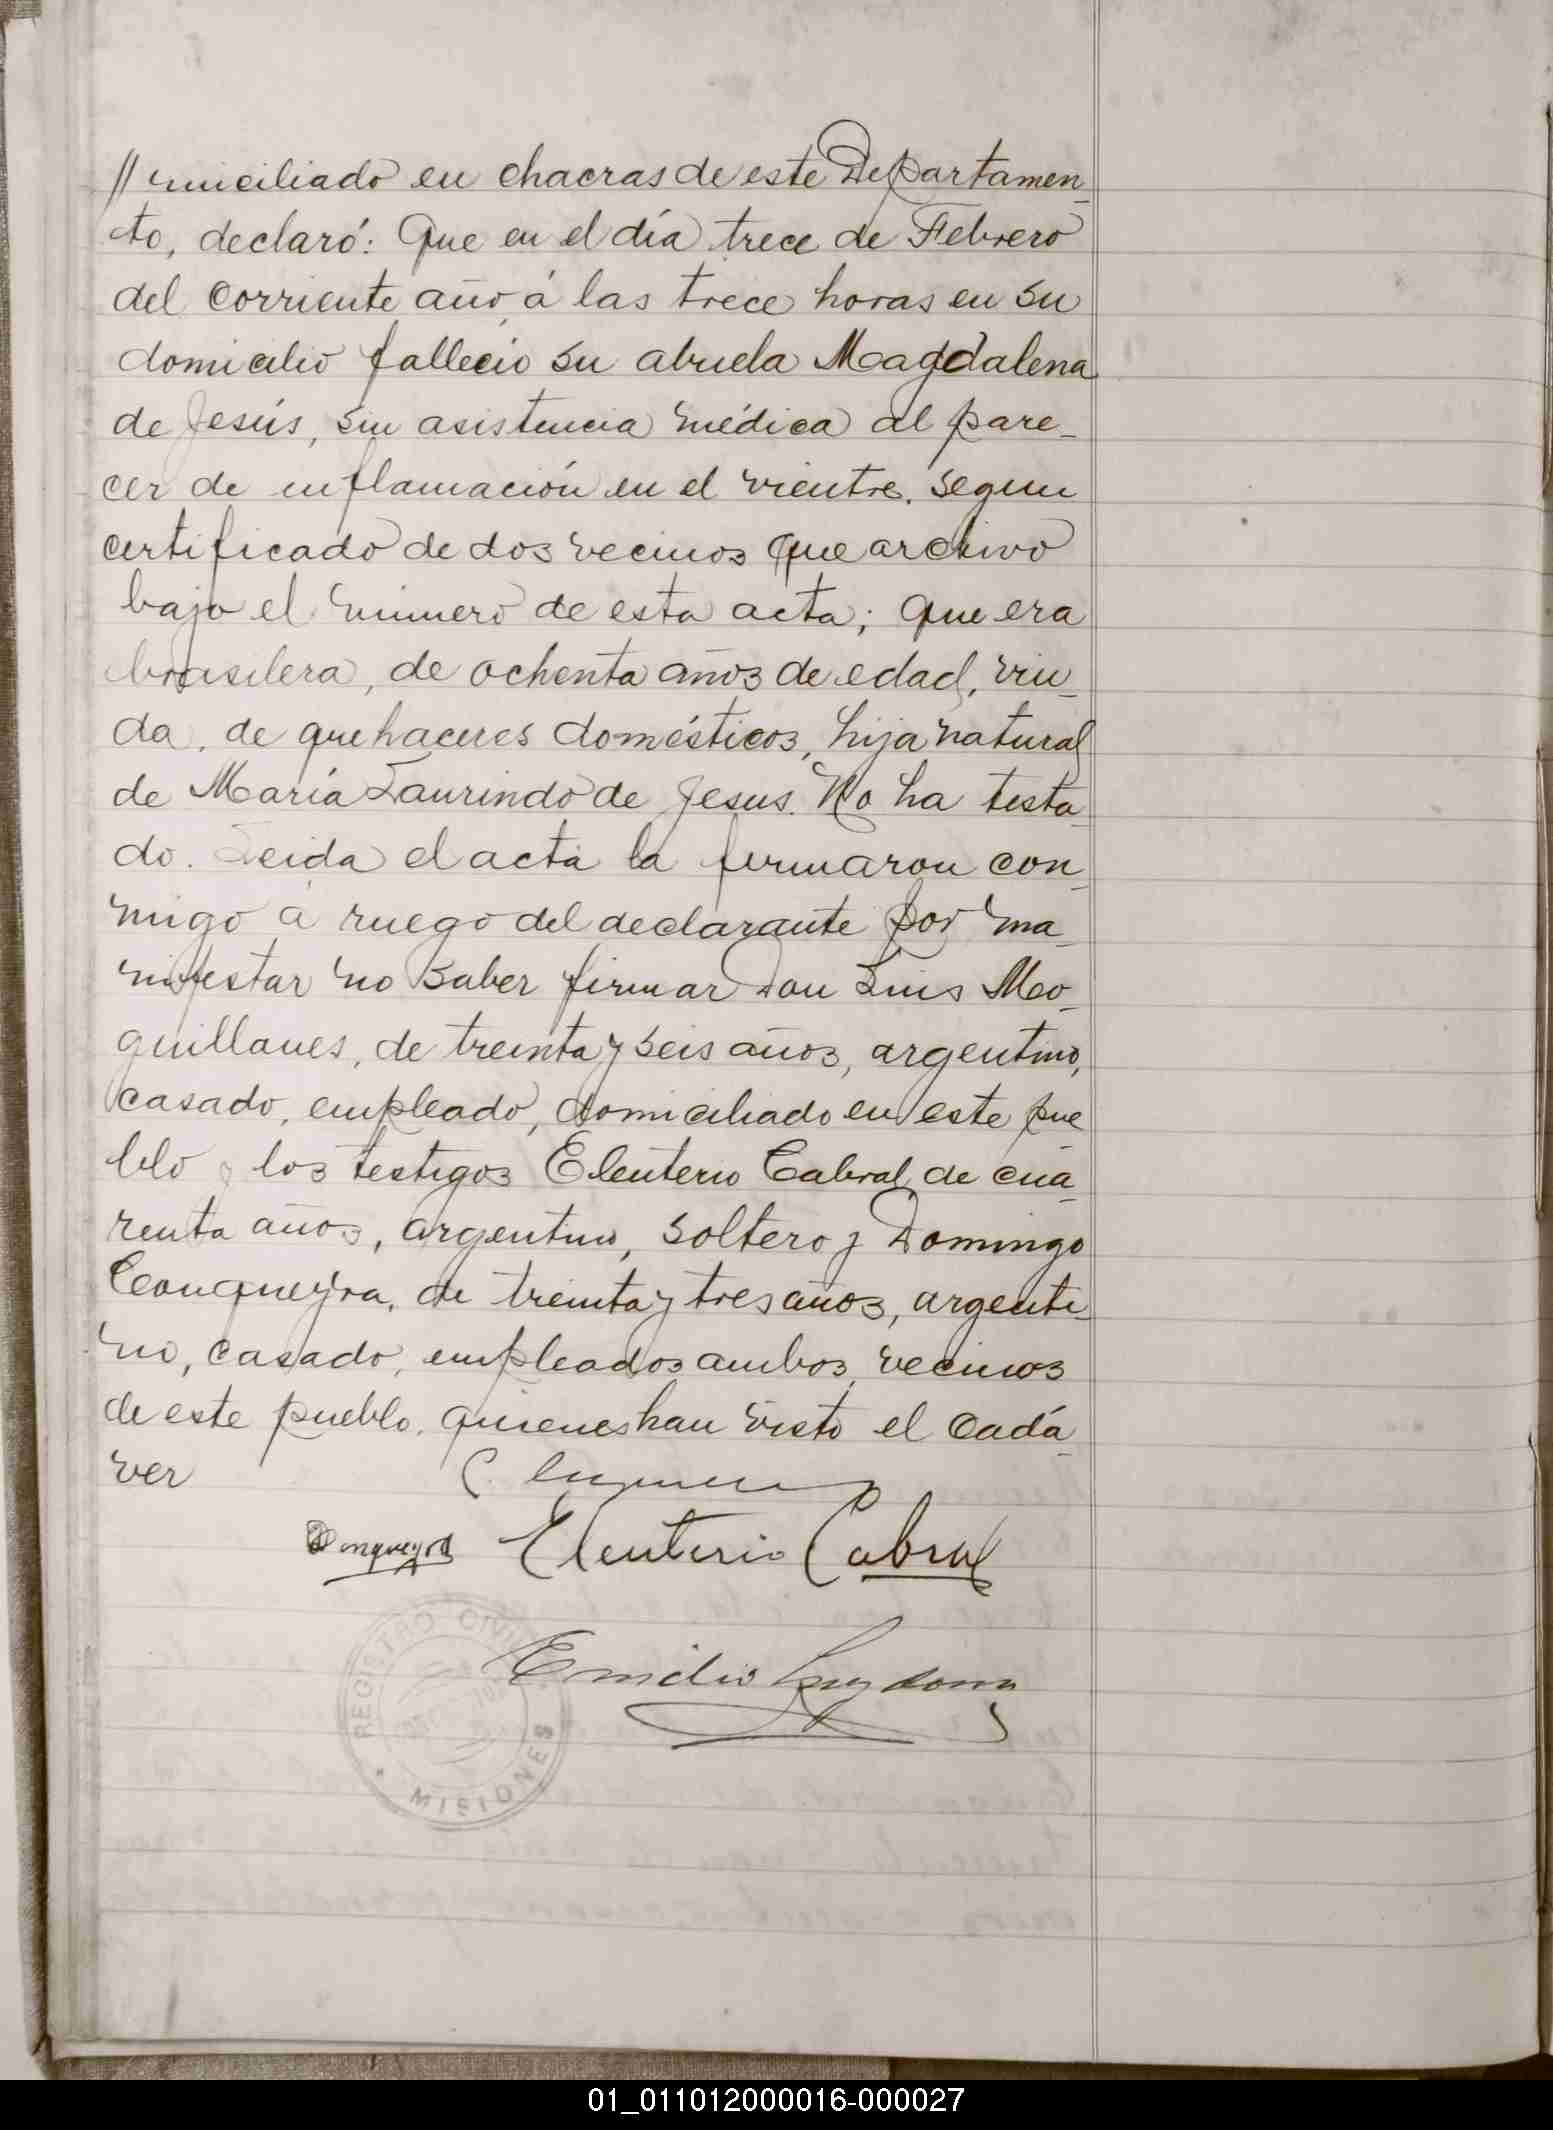 // miciliado en chacras de este Departamen-
to, declaró: Que en el día trece de Febrero
del corriente año, á las trece horas en su
domicilio falleció su abuela Magdalena
de Jesús, sin asistencia médica al pare-
cer de inflamación en el vientre. segun
certificado de dos vecinos que archivo
bajo el número de esta acta; que era
brasilera, de ochenta años de edad, viu-
da, de quehaceres domésticos, hija natural
de María Laurindo de Jesus. No ha testa-
do. Leida el acta la firmaron con-
migo á ruego del declarante por ma-
nifestar no saber firmar Don Luis Mo-
quillanes, de treinta y seis años, argentino,
casado, empleado, domiciliado en este pue-
blo y los testigos Eleuterio Cabral, de cua-
renta años, argentino, soltero y Domingo
Conqueyra, de treinta y tres años, argenti-
no, casado, empleados ambos, vecinos
de este pueblo, quienes han visto el cadá-
ver
Donqueyra Eleuterio Cabral
Emilio
REGISTRO CIVIL
MISIONES
01_011012000016-000027